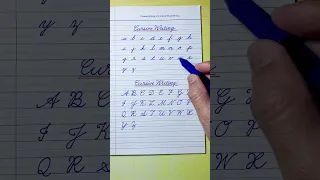 Cursive Writing
a b c d e f g h
i j k l m n o p
q r s t u v x
y z
Cursive Writing
A B C D E F G
I J K L M N O P
Q R S T U V W X
Y Z